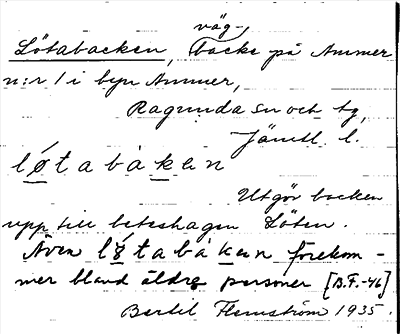 väg-
Lötabacken, backe på Ammer
n:r 1 i byn Ammer,
Ragunda sn och tg,
Jämtl. l.
løtabàkan
Utgör backen
upp till beteshagen Löten.
Även løtabàkan förekom-
mer bland äldre personer [B.F.-46]
Bertil Flemström 1935.